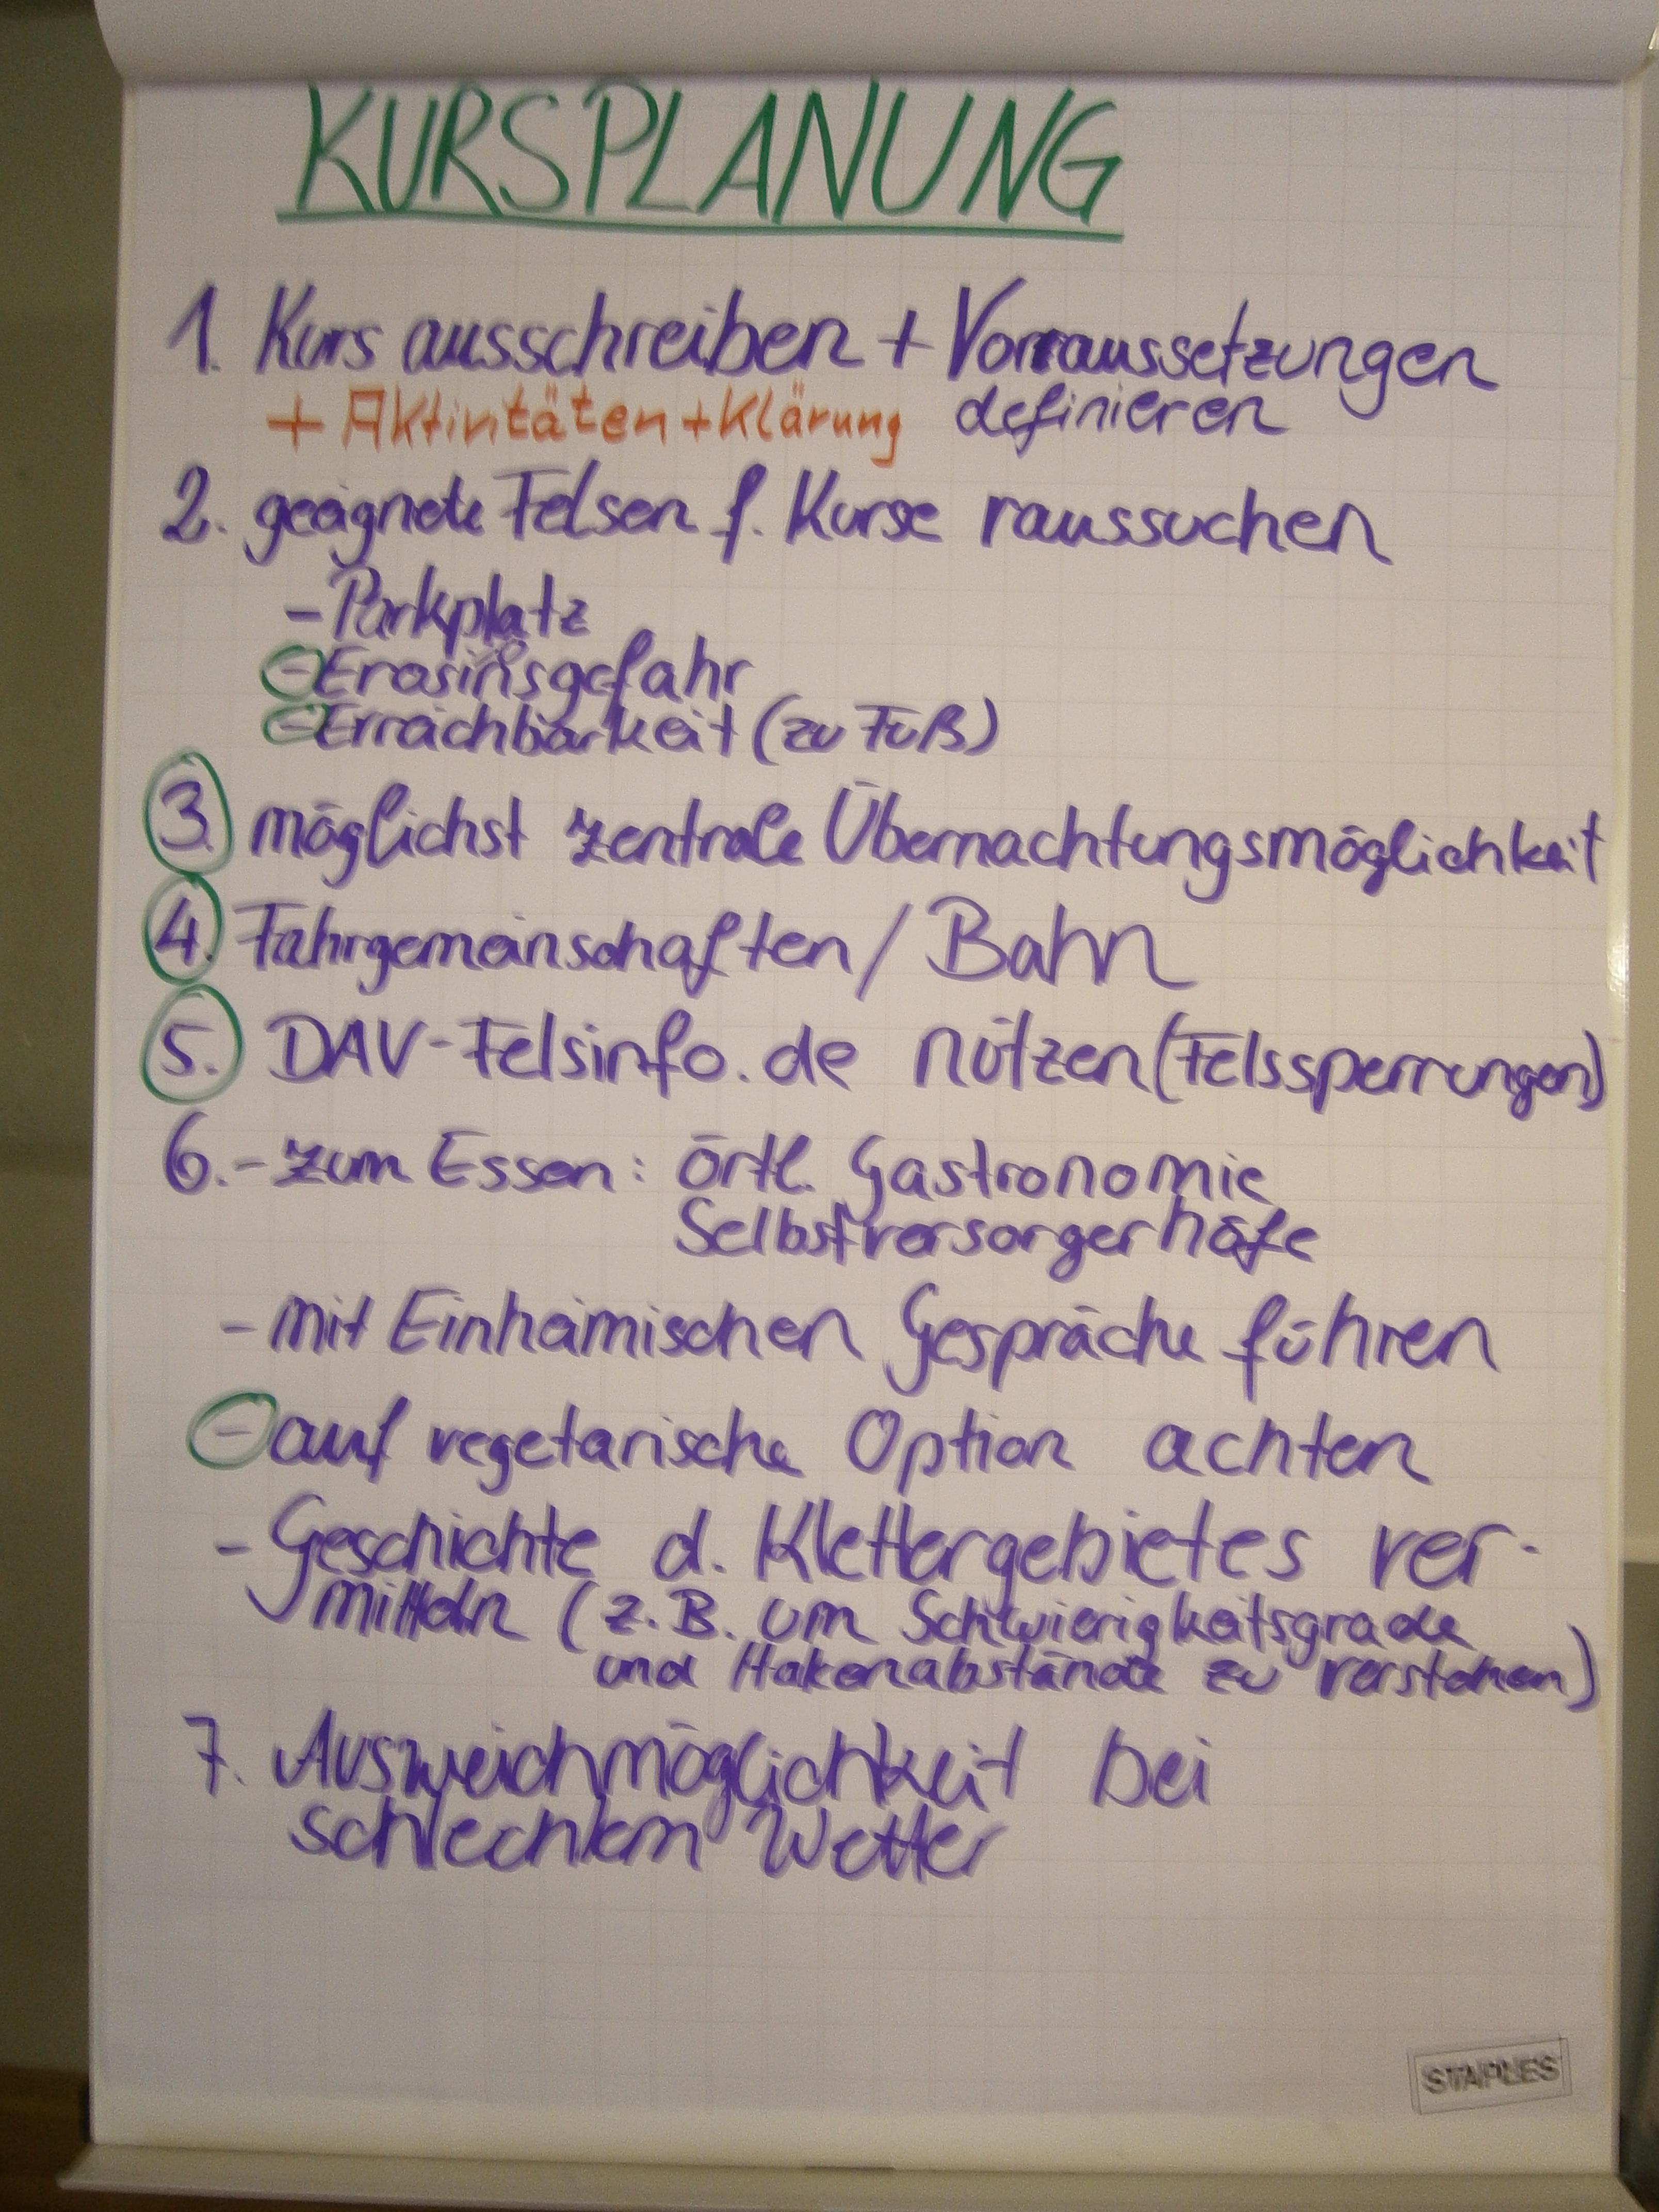 KURSPLANUNG
1. Kurs ausschreiben + Vorraussetzungen
+ Aktivitäten + Klärung definieren
2. geeignete Felsen f. Kurse raussuchen
- Parkplatz
- Erosionsgefahr
- Erreichbarkeit (zu Fuß)
3. möglichst zentrale Übernachtungsmöglichkeit
4. Fahrgemeinschaften / Bahn
5. DAV-Felsinfo.de nützen (Felssperrungen)
6. - zum Essen: örtl. Gastronomie
Selbstversorgerhöfe
- mit Einheimischen Gespräche führen
- auf vegetarische Option achten
- Geschichte d. Klettergebietes ver-
mitteln (z.B. um Schwierigkeitsgrade
und Hakenabstände zu verstehen)
7. Ausweichmöglichkeit bei
schlechtem Wetter
STAPLES